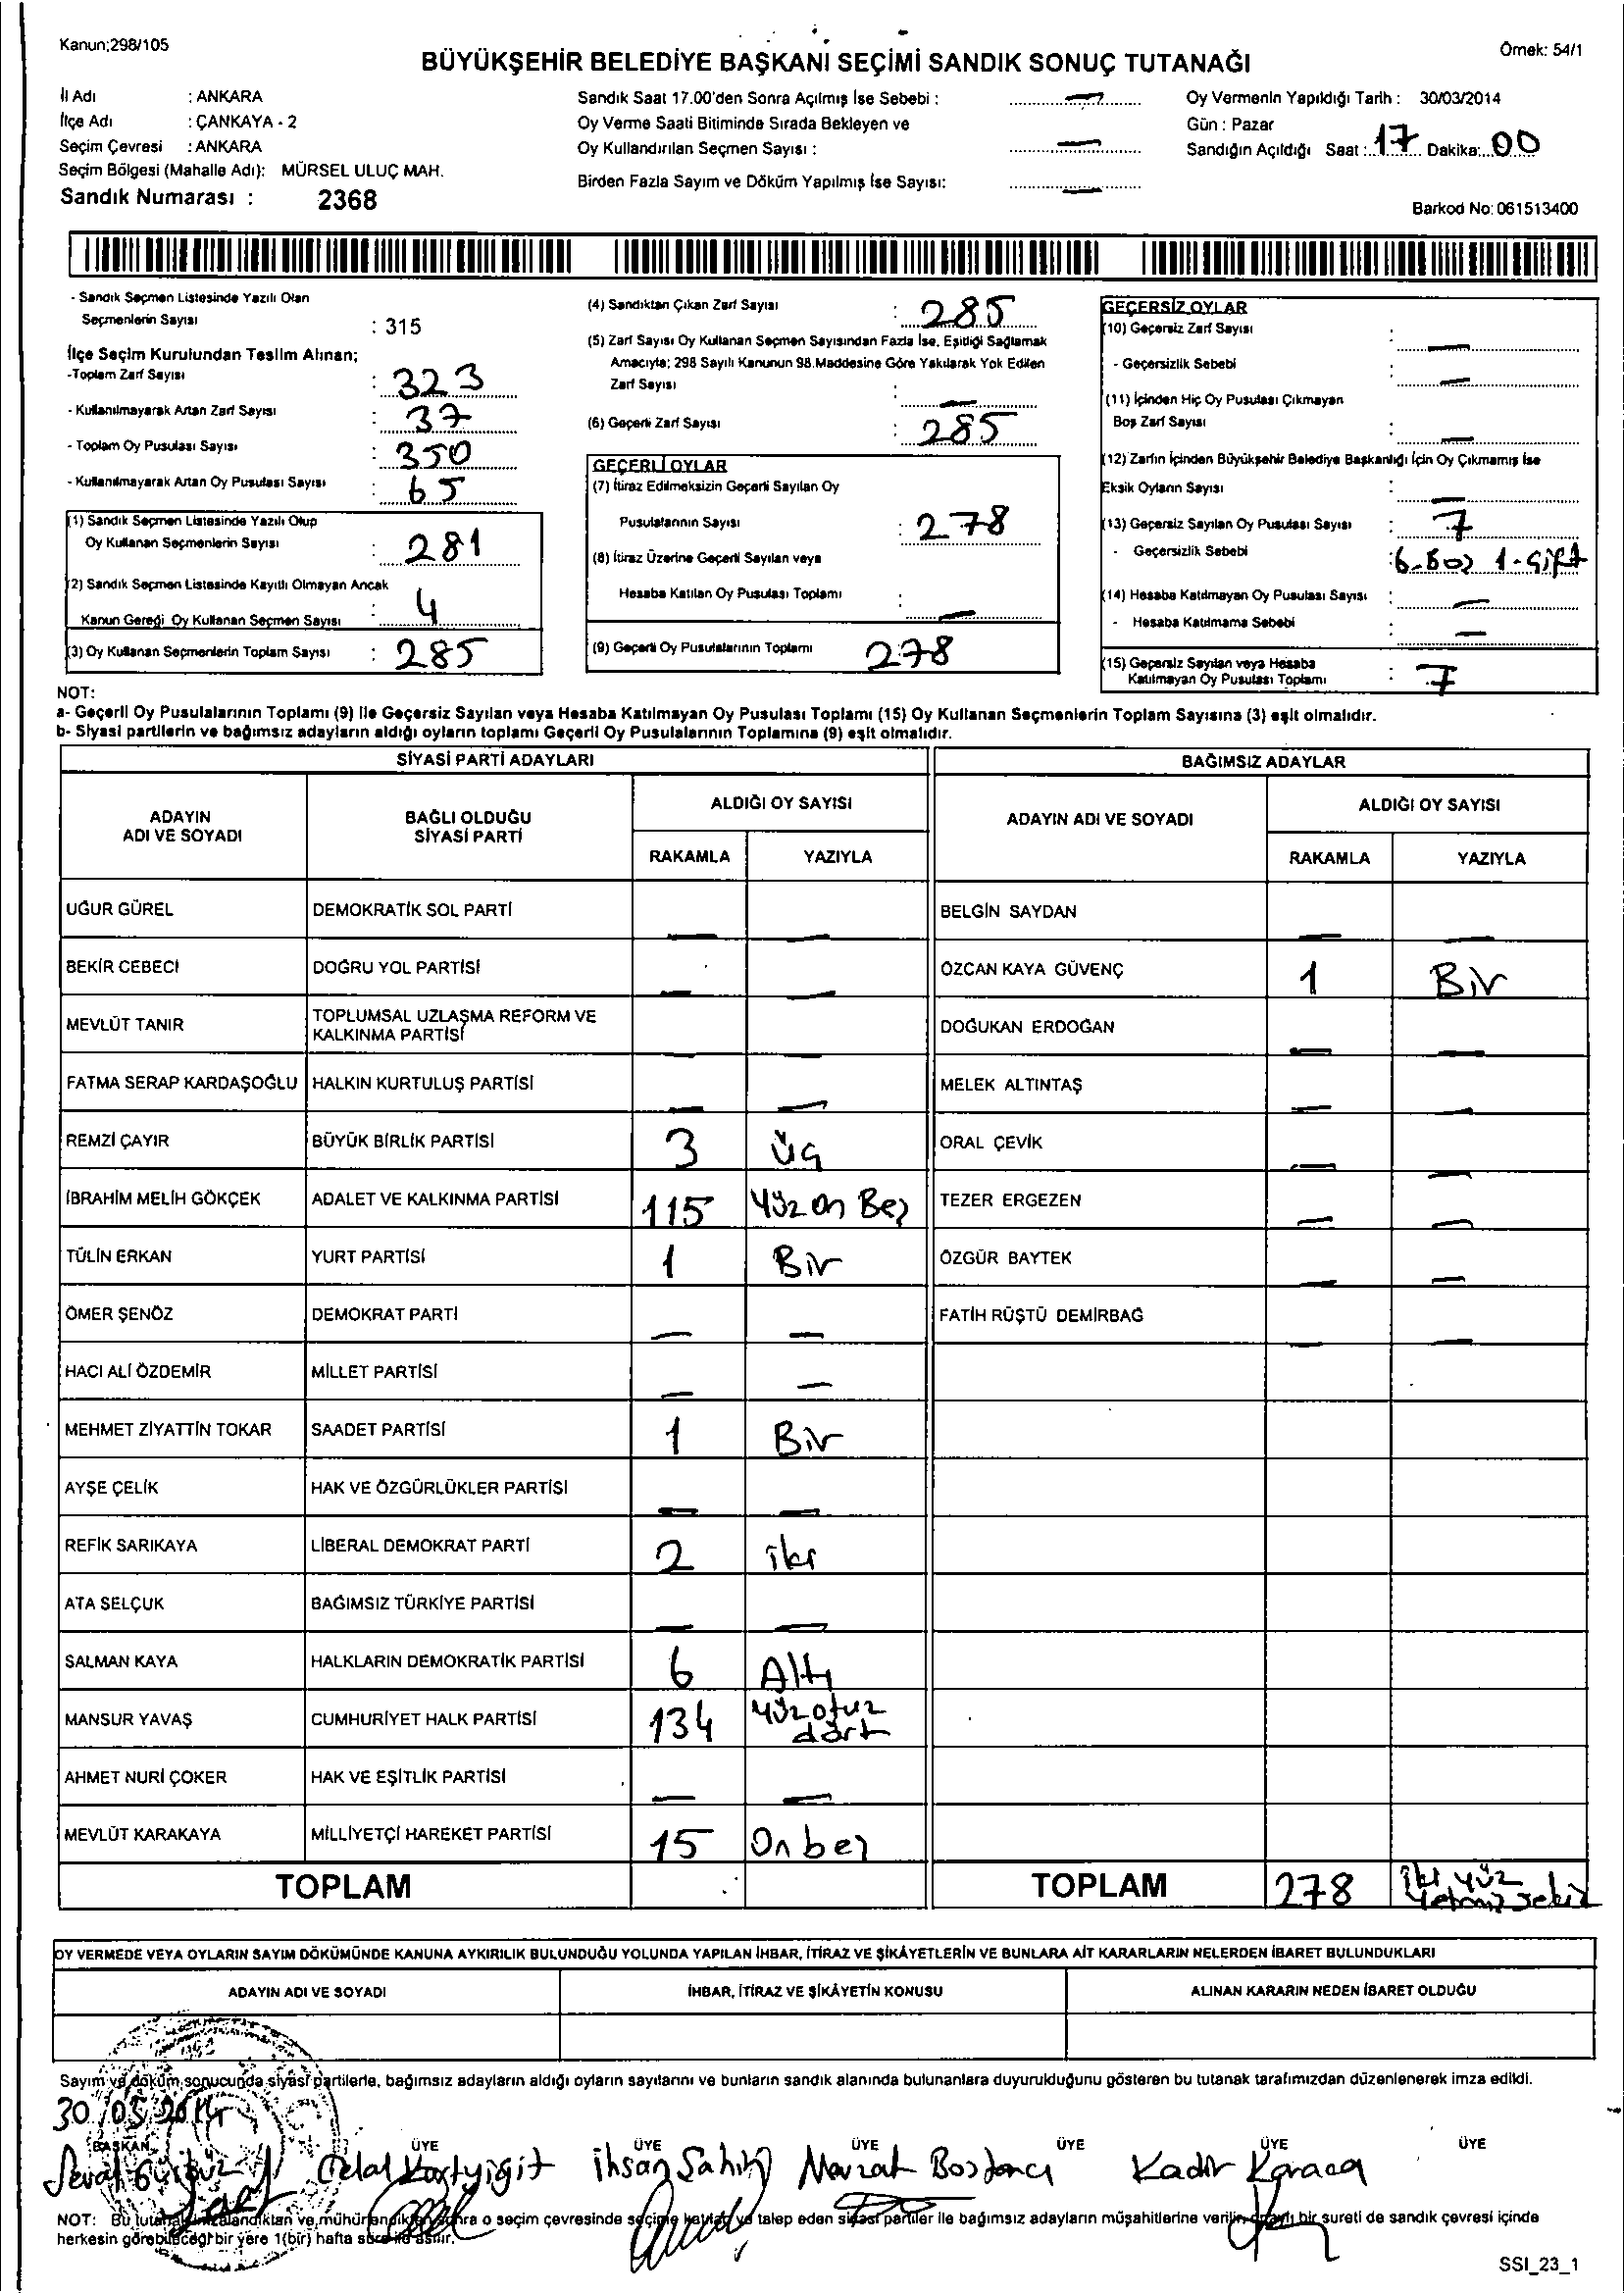 Kanun;298/105
Örnek: 54/1
BÜYÜKŞEHİR BELEDİYE BAŞKANI SEÇİMİ SANDIK SONUÇ TUTANAĞI
İl Adı : ANKARA
İlçe Adı : ÇANKAYA - 2
Seçim Çevresi : ANKARA
Seçim Bölgesi (Mahalle Adı): MÜRSEL ULUÇ MAH.
Sandık Numarası : 2368
Sandık Saat 17.00'den Sonra Açılmış İse Sebebi : —
Oy Verme Saati Bitiminde Sırada Bekleyen ve
Oy Kullandırılan Seçmen Sayısı : —
Birden Fazla Sayım ve Döküm Yapılmış İse Sayısı: —
Oy Vermenin Yapıldığı Tarih : 30/03/2014
Gün : Pazar
Sandığın Açıldığı Saat : 17 Dakika: 00
Barkod No: 061513400
- Sandık Seçmen Listesinde Yazılı Olan
Seçmenlerin Sayısı : 315
İlçe Seçim Kurulundan Teslim Alınan;
-Toplam Zarf Sayısı : 323
- Kullanılmayarak Artan Zarf Sayısı : 37
- Toplam Oy Pusulası Sayısı : 350
- Kullanılmayarak Artan Oy Pusulası Sayısı : 65
(1) Sandık Seçmen Listesinde Yazılı Olup
Oy Kullanan Seçmenlerin Sayısı : 281
(2) Sandık Seçmen Listesinde Kayıtlı Olmayan Ancak
Kanun Gereği Oy Kullanan Seçmen Sayısı : 4
(3) Oy Kullanan Seçmenlerin Toplam Sayısı : 285
(4) Sandıktan Çıkan Zarf Sayısı : 285
(5) Zarf Sayısı Oy Kullanan Seçmen Sayısından Fazla İse, Eşitliği Sağlamak
Amacıyla; 298 Sayılı Kanunun 98.Maddesine Göre Yakılarak Yok Edilen
Zarf Sayısı : —
(6) Geçerli Zarf Sayısı : 285
GEÇERLİ OYLAR
(7) İtiraz Edilmeksizin Geçerli Sayılan Oy
Pusulalarının Sayısı : 278
(8) İtiraz Üzerine Geçerli Sayılan veya
Hesaba Katılan Oy Pusulası Toplamı : —
(9) Geçerli Oy Pusulalarının Toplamı 278
GEÇERSİZ OYLAR
(10) Geçersiz Zarf Sayısı : —
- Geçersizlik Sebebi : —
(11) İçinden Hiç Oy Pusulası Çıkmayan
Boş Zarf Sayısı : —
(12) Zarfın İçinden Büyükşehir Belediye Başkanlığı İçin Oy Çıkmamış İse
Eksik Oyların Sayısı : —
(13) Geçersiz Sayılan Oy Pusulası Sayısı : 7
- Geçersizlik Sebebi : 6-Boş 1-Çift
(14) Hesaba Katılmayan Oy Pusulası Sayısı : —
- Hesaba Katılmama Sebebi : —
(15) Geçersiz Sayılan veya Hesaba
Katılmayan Oy Pusulası Toplamı : 7
NOT:
a- Geçerli Oy Pusulalarının Toplamı (9) ile Geçersiz Sayılan veya Hesaba Katılmayan Oy Pusulası Toplamı (15) Oy Kullanan Seçmenlerin Toplam Sayısına (3) eşit olmalıdır.
b- Siyasi partilerin ve bağımsız adayların aldığı oyların toplamı Geçerli Oy Pusulalarının Toplamına (9) eşit olmalıdır.
SİYASİ PARTİ ADAYLARI
ADAYIN
ADI VE SOYADI
BAĞLI OLDUĞU
SİYASİ PARTİ
ALDIĞI OY SAYISI
RAKAMLA YAZIYLA
UĞUR GÜREL DEMOKRATİK SOL PARTİ — —
BEKİR CEBECİ DOĞRU YOL PARTİSİ — —
MEVLÜT TANIR TOPLUMSAL UZLAŞMA REFORM VE
KALKINMA PARTİSİ — —
FATMA SERAP KARDAŞOĞLU HALKIN KURTULUŞ PARTİSİ — —
REMZİ ÇAYIR BÜYÜK BİRLİK PARTİSİ 3 Üç
İBRAHİM MELİH GÖKÇEK ADALET VE KALKINMA PARTİSİ 115 Yüz on Beş
TÜLİN ERKAN YURT PARTİSİ 1 Bir
ÖMER ŞENÖZ DEMOKRAT PARTİ — —
HACI ALİ ÖZDEMİR MİLLET PARTİSİ — —
MEHMET ZİYATTİN TOKAR SAADET PARTİSİ 1 Bir
AYŞE ÇELİK HAK VE ÖZGÜRLÜKLER PARTİSİ — —
REFİK SARIKAYA LİBERAL DEMOKRAT PARTİ 2 iki
ATA SELÇUK BAĞIMSIZ TÜRKİYE PARTİSİ — —
SALMAN KAYA HALKLARIN DEMOKRATİK PARTİSİ 6 Altı
MANSUR YAVAŞ CUMHURİYET HALK PARTİSİ 134 Yüz otuz
dört
AHMET NURİ ÇOKER HAK VE EŞİTLİK PARTİSİ — —
MEVLÜT KARAKAYA MİLLİYETÇİ HAREKET PARTİSİ 15 On beş
TOPLAM
BAĞIMSIZ ADAYLAR
ADAYIN ADI VE SOYADI
ALDIĞI OY SAYISI
RAKAMLA YAZIYLA
BELGİN SAYDAN — —
ÖZCAN KAYA GÜVENÇ 1 Bir
DOĞUKAN ERDOĞAN — —
MELEK ALTINTAŞ — —
ORAL ÇEVİK — —
TEZER ERGEZEN — —
ÖZGÜR BAYTEK — —
FATİH RÜŞTÜ DEMİRBAĞ — —
TOPLAM 278 iki yüz
yetmiş sekiz
OY VERMEDE VEYA OYLARIN SAYIM DÖKÜMÜNDE KANUNA AYKIRILIK BULUNDUĞU YOLUNDA YAPILAN İHBAR, İTİRAZ VE ŞİKÂYETLERİN VE BUNLARA AİT KARARLARIN NELERDEN İBARET BULUNDUKLARI
ADAYIN ADI VE SOYADI İHBAR, İTİRAZ VE ŞİKÂYETİN KONUSU ALINAN KARARIN NEDEN İBARET OLDUĞU
Sayım ve döküm sonucunda siyasi partilerle, bağımsız adayların aldığı oyların sayılarını ve bunların sandık alanında bulunanlara duyurulduğunu gösteren bu tutanak tarafımızdan düzenlenerek imza edildi.
30/03/2014
BAŞKAN ÜYE ÜYE ÜYE ÜYE ÜYE ÜYE
Celal ihsan Şahin Nevzat Bostancı Kadir Karaca
NOT: Bu tutanak imzalandıktan ve mühürlendikten sonra o seçim çevresinde seçime katılan ve talep eden siyasi partiler ile bağımsız adayların müşahitlerine verilir, onaylı bir sureti de sandık çevresi içinde
herkesin görebileceği bir yere 1(bir) hafta süre ile asılır.
SSI_23_1